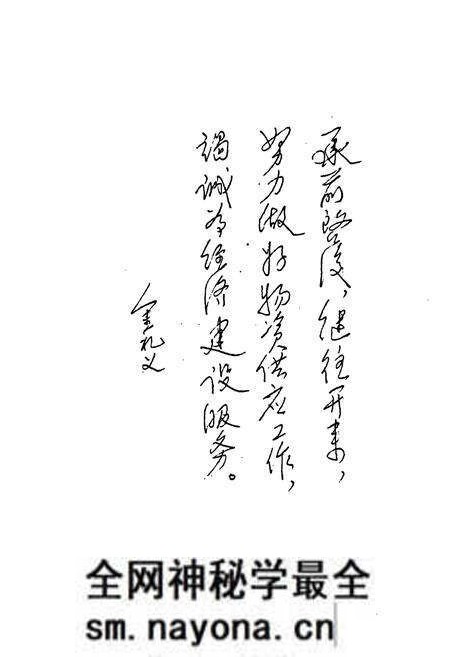 承前啓後，继往开来，
努力做好物资供应工作，
竭诚为经济建设服务。
金礼义
全网神秘学最全
sm.nayona.cn